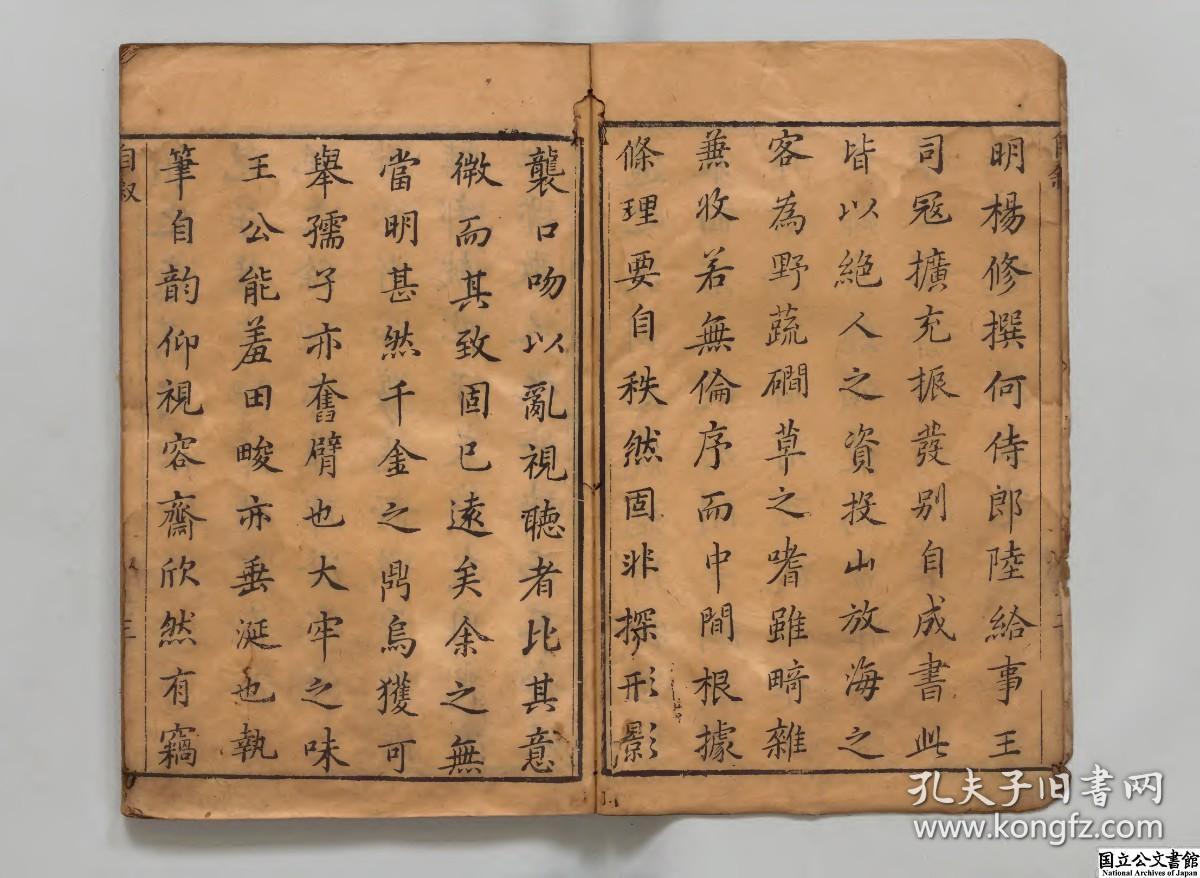 明楊修撰何侍郎陸給事王
司冦擴充振發别自成書此
皆以絶人之資投山放海之
客為野蔬磵草之嗜雖畸雜
兼收若無倫序而中間根據
條理要自秩然固非探形影
襲口吻以亂視聽者比其意
微而其致固已遠矣余之無
當明甚然千金之鼎烏獲可
舉孺子亦奮臂也大牢之味
王公能羞田畯亦垂涎也執
筆自韵仰視容齋欣然有竊
自叙
三
孔夫子旧书网
www.kongfz.com
国立公文書館
National Archives of Japan